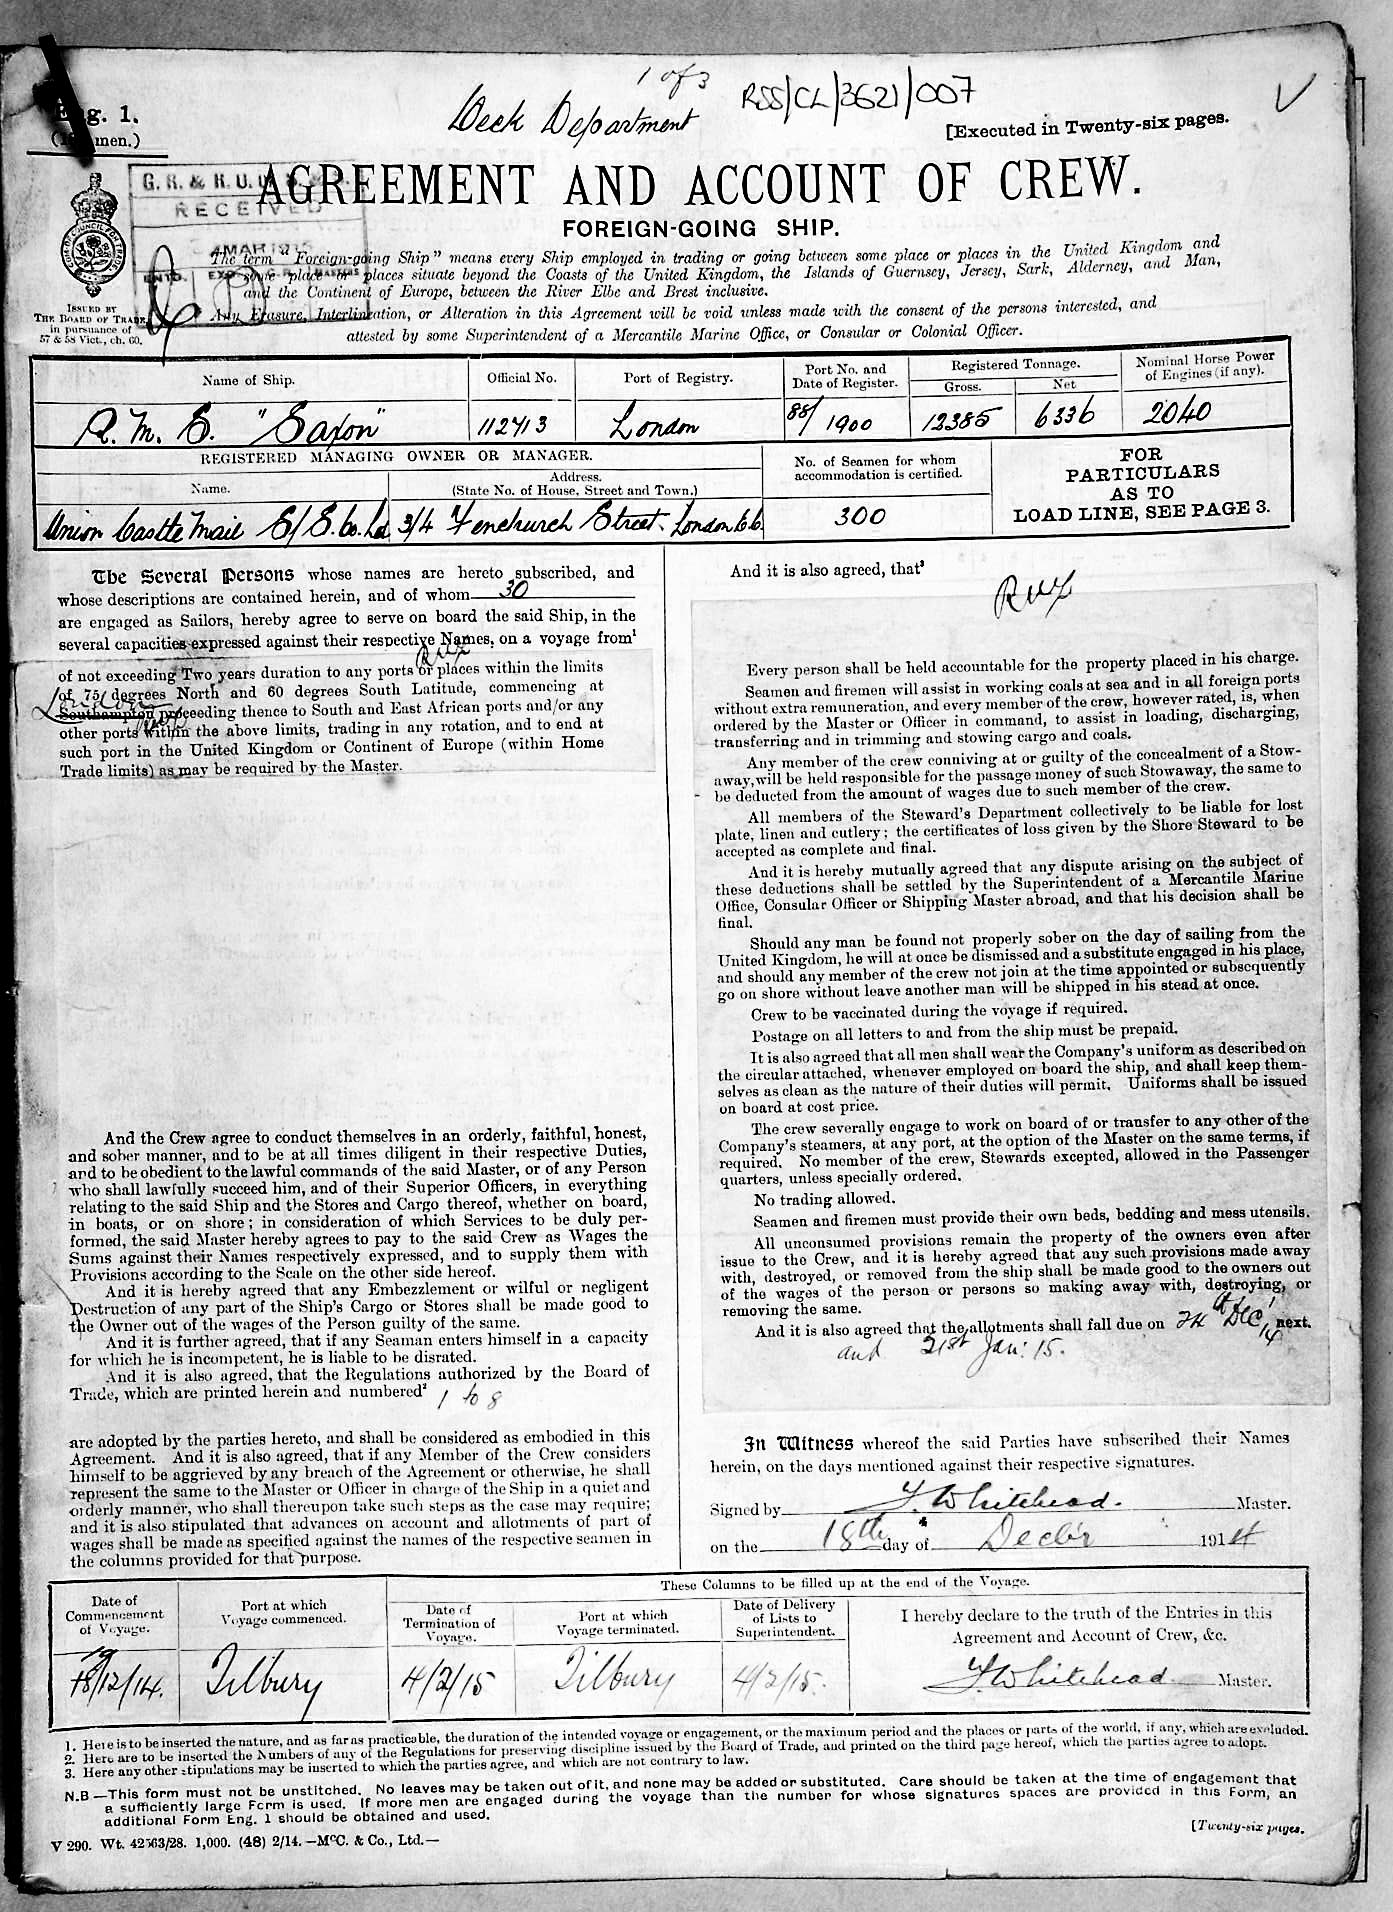 1 of 3
Deck Department
RSS/CL/3621/007
Eng. 1.
[Executed in Twenty-six pages.
G. R. &
RECEIVED
MAR 1915
AGREEMENT AND ACCOUNT OF CREW.
FOREIGN-GOING SHIP.
The term "Foreign-going Ship" means every Ship employed in trading or going between some place or places in the United Kingdom and
some place or places situate beyond the Coasts of the United Kingdom, the Islands of Guernsey, Jersey, Sark, Alderney, and Man,
and the Continent of Europe, between the River Elbe and Brest inclusive.
Any Erasure, Interlineation, or Alteration in this Agreement will be void unless made with the consent of the persons interested, and
attested by some Superintendent of a Mercantile Marine Office, or Consular or Colonial Officer.
ISSUED BY
THE BOARD OF TRADE
in pursuance of
57 & 58 Vict., ch. 60.
Name of Ship.
Official No.
Port of Registry.
Port No. and
Date of Register.
Registered Tonnage.
Gross.
Net
Nominal Horse Power
of Engines (if any).
R. M. S. "Saxon"
112713
London
88/1900
12385
6336
2040
REGISTERED MANAGING OWNER OR MANAGER.
Name.
Address.
(State No. of House, Street and Town.)
No. of Seamen for whom
accommodation is certified.
FOR
PARTICULARS
AS TO
LOAD LINE, SEE PAGE 3.
Union Castle Mail S/S. Co. Ld
3/4 Fenchurch Street. London E.C.
300
The Several Persons whose names are hereto subscribed, and
whose descriptions are contained herein, and of whom 30
are engaged as Sailors, hereby agree to serve on board the said Ship, in the
several capacities expressed against their respective Names, on a voyage from¹
of not exceeding Two years duration to any ports or places within the limits
of 75 degrees North and 60 degrees South Latitude, commencing at
London
Southampton proceeding thence to South and East African ports and/or any
other ports within the above limits, trading in any rotation, and to end at
such port in the United Kingdom or Continent of Europe (within Home
Trade limits) as may be required by the Master.
And the Crew agree to conduct themselves in an orderly, faithful, honest,
and sober manner, and to be at all times diligent in their respective Duties,
and to be obedient to the lawful commands of the said Master, or of any Person
who shall lawfully succeed him, and of their Superior Officers, in everything
relating to the said Ship and the Stores and Cargo thereof, whether on board,
in boats, or on shore; in consideration of which Services to be duly per-
formed, the said Master hereby agrees to pay to the said Crew as Wages the
Sums against their Names respectively expressed, and to supply them with
Provisions according to the Scale on the other side hereof.
And it is hereby agreed that any Embezzlement or wilful or negligent
Destruction of any part of the Ship's Cargo or Stores shall be made good to
the Owner out of the wages of the Person guilty of the same.
And it is further agreed, that if any Seaman enters himself in a capacity
for which he is incompetent, he is liable to be disrated.
And it is also agreed, that the Regulations authorized by the Board of
Trade, which are printed herein and numbered² 1 to 8
are adopted by the parties hereto, and shall be considered as embodied in this
Agreement. And it is also agreed, that if any Member of the Crew considers
himself to be aggrieved by any breach of the Agreement or otherwise, he shall
represent the same to the Master or Officer in charge of the Ship in a quiet and
orderly manner, who shall thereupon take such steps as the case may require;
and it is also stipulated that advances on account and allotments of part of
wages shall be made as specified against the names of the respective seamen in
the columns provided for that purpose.
And it is also agreed, that³
Every person shall be held accountable for the property placed in his charge.
Seamen and firemen will assist in working coals at sea and in all foreign ports
without extra remuneration, and every member of the crew, however rated, is, when
ordered by the Master or Officer in command, to assist in loading, discharging,
transferring and in trimming and stowing cargo and coals.
Any member of the crew conniving at or guilty of the concealment of a Stow-
away, will be held responsible for the passage money of such Stowaway, the same to
be deducted from the amount of wages due to such member of the crew.
All members of the Steward's Department collectively to be liable for lost
plate, linen and cutlery; the certificates of loss given by the Shore Steward to be
accepted as complete and final.
And it is hereby mutually agreed that any dispute arising on the subject of
these deductions shall be settled by the Superintendent of a Mercantile Marine
Office, Consular Officer or Shipping Master abroad, and that his decision shall be
final.
Should any man be found not properly sober on the day of sailing from the
United Kingdom, he will at once be dismissed and a substitute engaged in his place,
and should any member of the crew not join at the time appointed or subsequently
go on shore without leave another man will be shipped in his stead at once.
Crew to be vaccinated during the voyage if required.
Postage on all letters to and from the ship must be prepaid.
It is also agreed that all men shall wear the Company's uniform as described on
the circular attached, whenever employed on board the ship, and shall keep them-
selves as clean as the nature of their duties will permit. Uniforms shall be issued
on board at cost price.
The crew severally engage to work on board of or transfer to any other of the
Company's steamers, at any port, at the option of the Master on the same terms, if
required. No member of the crew, Stewards excepted, allowed in the Passenger
quarters, unless specially ordered.
No trading allowed.
Seamen and firemen must provide their own beds, bedding and mess utensils.
All unconsumed provisions remain the property of the owners even after
issue to the Crew, and it is hereby agreed that any such provisions made away
with, destroyed, or removed from the ship shall be made good to the owners out
of the wages of the person or persons so making away with, destroying, or
removing the same.
And it is also agreed that the allotments shall fall due on Dec 14 next.
and 21st Jan: 15.
In Witness whereof the said Parties have subscribed their Names
herein, on the days mentioned against their respective signatures.
Signed by F. Whitehead. Master.
on the 18th day of Decbr 1914
Date of
Commencement
of Voyage.
Port at which
Voyage commenced.
These Columns to be filled up at the end of the Voyage.
Date of
Termination of
Voyage.
Port at which
Voyage terminated.
Date of Delivery
of Lists to
Superintendent.
I hereby declare to the truth of the Entries in this
Agreement and Account of Crew, &c.
19
18/12/14.
Tilbury
4/2/15
Tilbury
4/2/15.
F. Whitehead Master.
1. Here is to be inserted the nature, and as far as practicable, the duration of the intended voyage or engagement, or the maximum period and the places or parts of the world, if any, which are excluded.
2. Here are to be inserted the Numbers of any of the Regulations for preserving discipline issued by the Board of Trade, and printed on the third page hereof, which the parties agree to adopt.
3. Here any other stipulations may be inserted to which the parties agree, and which are not contrary to law.
N.B —This form must not be unstitched. No leaves may be taken out of it, and none may be added or substituted. Care should be taken at the time of engagement that
a sufficiently large Form is used. If more men are engaged during the voyage than the number for whose signatures spaces are provided in this Form, an
additional Form Eng. 1 should be obtained and used.
V 290. Wt. 42563/28. 1,000. (48) 2/14. —McC. & Co., Ltd.—
[Twenty-six pages.